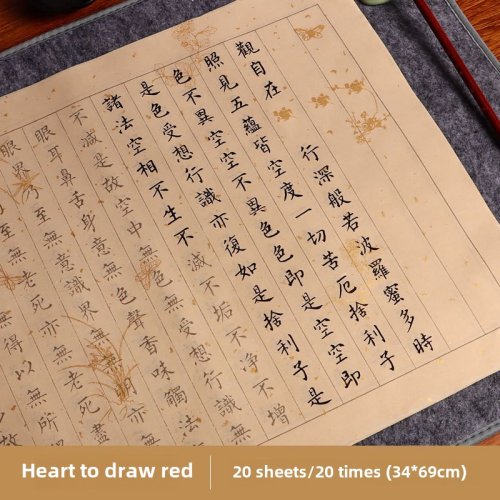 觀自在行深般若波羅蜜多時
照見五蘊皆空度一切苦厄捨利子
色不異空空不異色色即是空空即
是色受想行識亦復如是捨利子是
諸法空相不生不滅不垢不淨不增
不減是故空中無色無受想行識無
眼耳鼻舌身意無色聲香味觸法
眼界乃至無意識界無
老死亦無老死盡
得以無所
Heart to draw red
20 sheets/20 times (34*69cm)